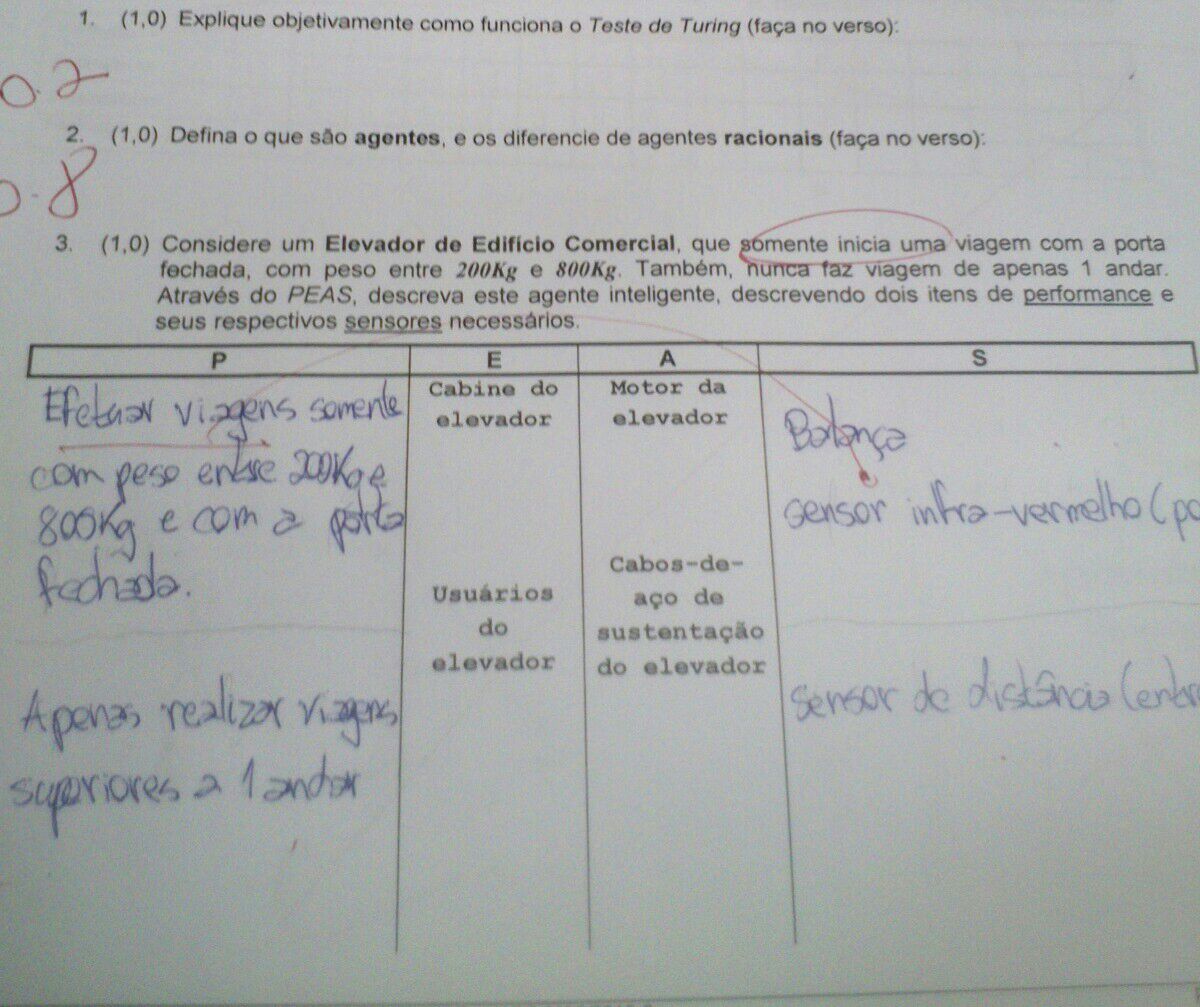 1. (1,0) Explique objetivamente como funciona o Teste de Turing (faça no verso):
0.2
2. (1,0) Defina o que são agentes, e os diferencie de agentes racionais (faça no verso):
0.8
3. (1,0) Considere um Elevador de Edifício Comercial, que somente inicia uma viagem com a porta
fechada, com peso entre 200Kg e 800Kg. Também, nunca faz viagem de apenas 1 andar.
Através do PEAS, descreva este agente inteligente, descrevendo dois itens de performance e
seus respectivos sensores necessários.
P E A S
Efetuar viagens somente
com peso entre 200Kg e
800Kg e com a porta
fechada.
Apenas realizar viagens
superiores a 1 andar
Cabine do
elevador
Usuários
do
elevador
Motor da
elevador
Cabos-de-
aço de
sustentação
do elevador
Balança
sensor infra-vermelho (po
sensor de distância (entr